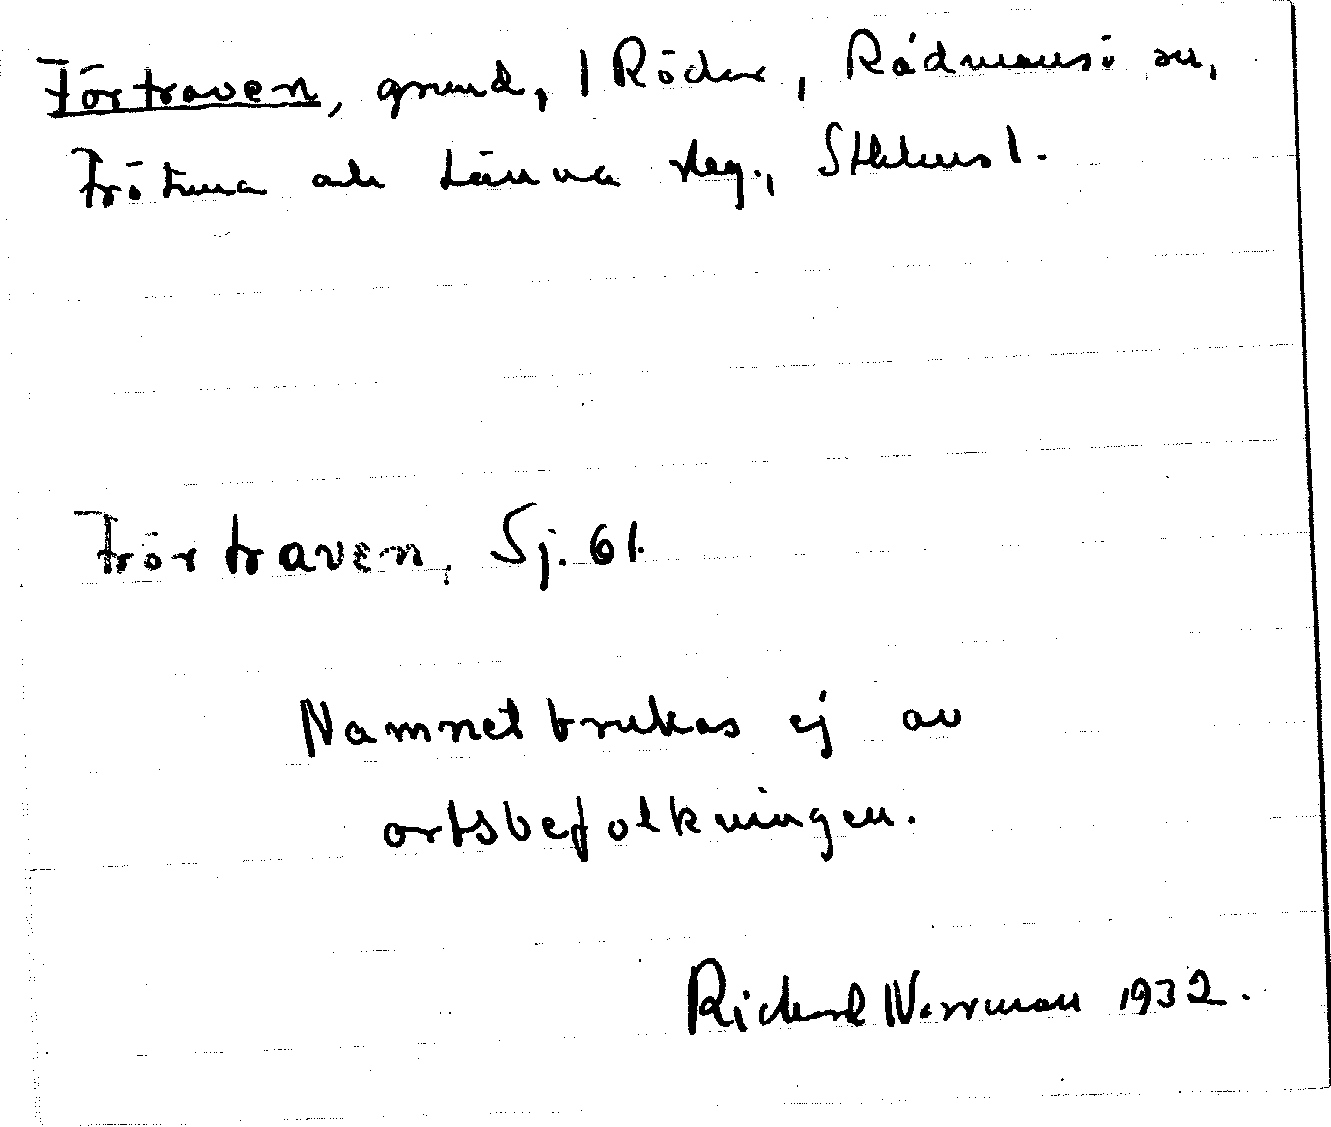 Förtraven, grund, l Rödar, Rådmansö sn,
Frötuna och Länna skg., Sthlms l.
Förtraven, Sj. 61.
Namnet brukas ej av
ortsbefolkningen.
Rickard Norrman 1932.